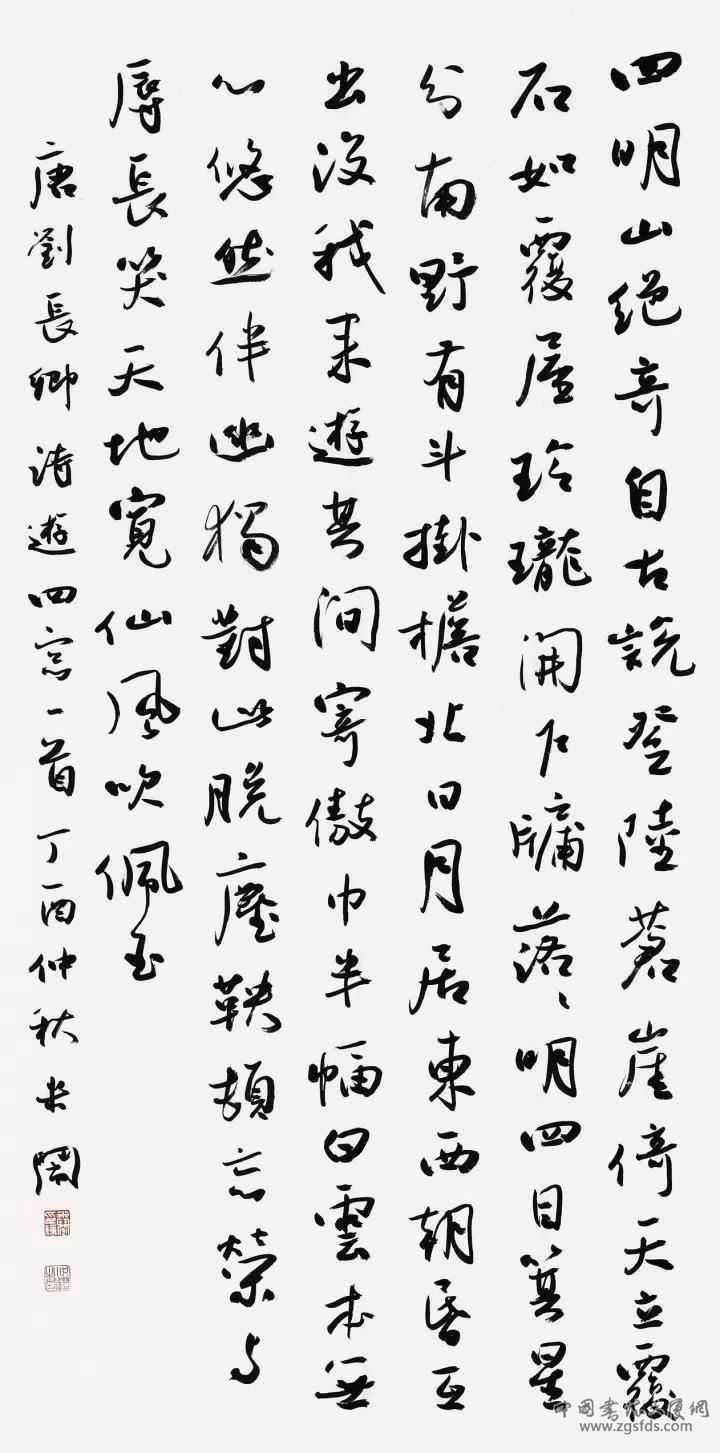 四明山絕奇自古說登陸蒼崖倚天立覆
石如覆屋玲瓏開戶牖落〻明四目箕星
分南野有斗掛檐北日月居東西朝昏互
出沒我來遊其間寄傲巾半幅白雲本無
心悠然伴幽獨對此脫塵鞅頓忘榮与
辱長笑天地寬仙風吹佩玉
唐劉長卿詩遊四窗一首丁酉仲秋米鬧
www.zgsfds.com